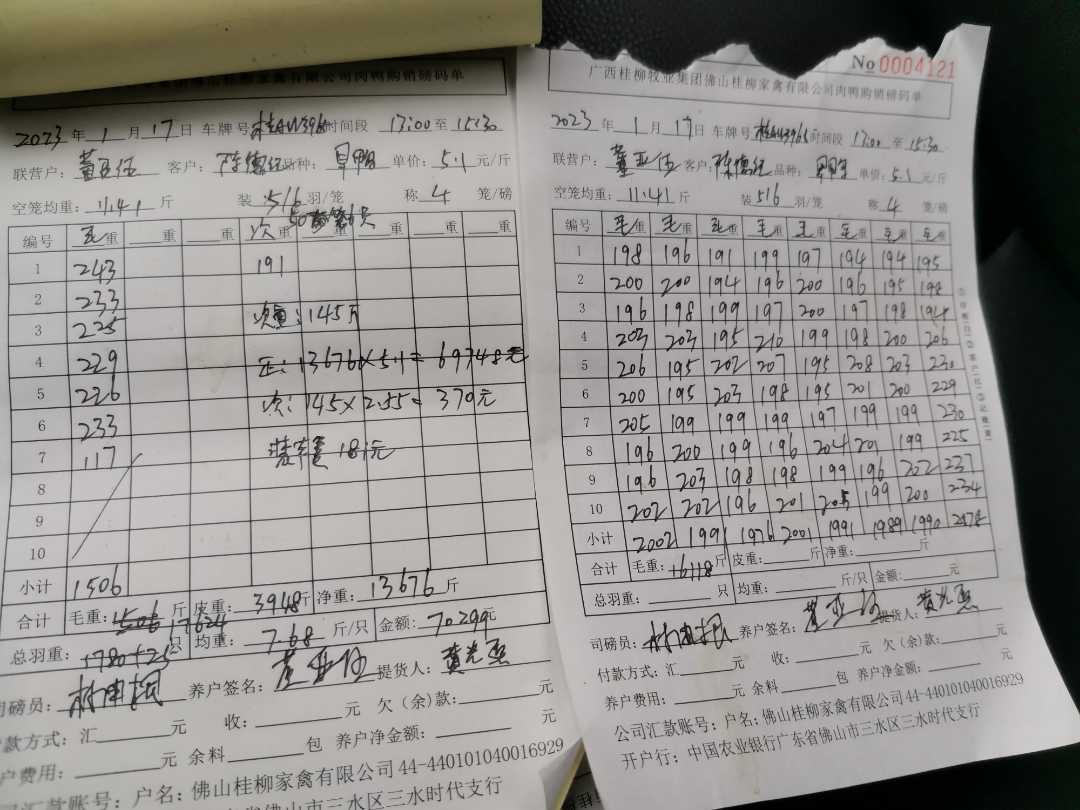 有限公司肉鸭购销磅码单
2023 年 1 月 17 日 车牌号 时间段 13:00 至 15:30
联营户: 董亚伍 客户: 陈德纪 品种: 旱鸭 单价: 5.1 元/斤
空笼均重: 11.41 斤 装 5/6 羽/笼 称 4 笼/磅
编号 毛重 重 重 次重 重 重 重 重
1 243 191
2 233
3 225 次重: 145斤
4 229 正: 13676×5.1= 69748元
5 226 次: 145×2.55= 370元
6 233
7 117 装车董 181元
8
9
10
小计 1506
合计 毛重: 1506 17624 斤 皮重: 3948 斤 净重: 13676 斤
总羽重: 1780+25 只 均重: 7.68 斤/只 金额: 70299元
司磅员: 养户签名: 董亚伍 提货人:
付款方式: 汇 元 收: 元 欠(余)款: 元
养户费用: 元 余料 包 养户净金额: 元
公司汇款账号: 户名: 佛山桂柳家禽有限公司 44-440101040016929
佛山市三水区三水时代支行
No 0004121
广西桂柳牧业集团佛山桂柳家禽有限公司肉鸭购销磅码单
2023 年 1 月 17 日 车牌号 时间段 13:00 至 15:30
联营户: 董亚伍 客户: 陈德纪 品种: 旱鸭 单价: 5.1 元/斤
空笼均重: 11.41 斤 装 5/6 羽/笼 称 4 笼/磅
编号 毛重 毛重 毛重 毛重 毛重 毛重 毛重 毛重
1 198 196 191 199 197 194 194 195
2 200 200 194 196 200 196 195 198
3 196 198 199 197 200 197 198 194
4 203 203 195 210 199 198 200 206
5 206 195 202 207 195 208 203 230
6 200 195 203 198 195 201 200 229
7 205 199 199 199 197 199 199 230
8 196 200 199 196 204 201 199 225
9 196 203 198 198 199 196 202 237
10 202 202 196 201 205 199 200 234
小计 2002 1991 1976 2001 1991 1989 1990 2178
合计 毛重: 16118 斤 皮重: 斤 净重: 斤
总羽重: 只 均重: 斤/只 金额: 元
司磅员: 养户签名: 董亚伍 提货人:
付款方式: 汇 元 收: 元 欠(余)款: 元
养户费用: 元 余料 包 养户净金额: 元
公司汇款账号: 户名: 佛山桂柳家禽有限公司 44-440101040016929
开户行: 中国农业银行广东省佛山市三水区三水时代支行